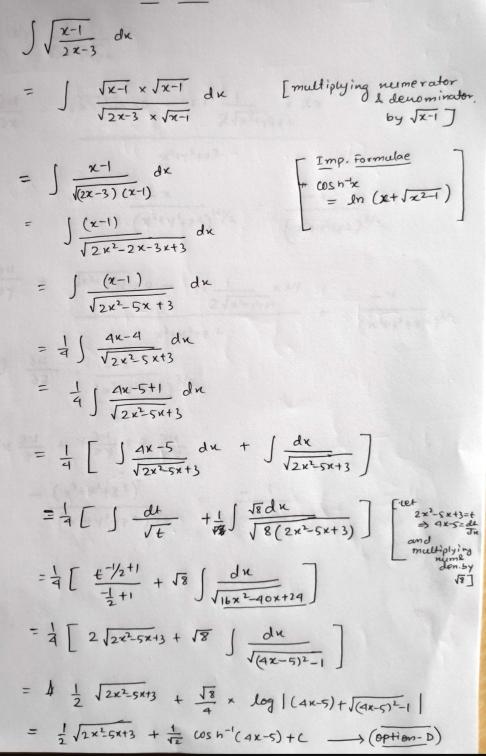 ∫ √(x-1 / 2x-3) dx
= ∫ √x-1 × √x-1 / √2x-3 × √x-1 dx [multiplying numerator & denominator by √x-1]
= ∫ x-1 / √(2x-3)(x-1) dx
[Imp. Formulae
cosh⁻¹x
= ln (x+√x²-1)]
= ∫ (x-1) / √2x²-2x-3x+3 dx
= ∫ (x-1) / √2x²-5x+3 dx
= 1/4 ∫ 4x-4 / √2x²-5x+3 dx
= 1/4 ∫ 4x-5+1 / √2x²-5x+3 dx
= 1/4 [ ∫ 4x-5 / √2x²-5x+3 dx + ∫ dx / √2x²-5x+3 ]
= 1/4 [ ∫ dt / √t + ∫ √8 dx / √8(2x²-5x+3) ]
[Let
2x²-5x+3=t
⇒ 4x-5=dt/dx
and
multiplying
nume
den. by
√8]
= 1/4 [ t^(-1/2+1) / (-1/2+1) + √8 ∫ dx / √16x²-40x+24 ]
= 1/4 [ 2√2x²-5x+3 + √8 ∫ dx / √(4x-5)²-1 ]
= 1/2 √2x²-5x+3 + √8/4 × log |(4x-5)+√(4x-5)²-1|
= 1/2 √2x²-5x+3 + 1/√2 cosh⁻¹(4x-5)+c → (option-D)